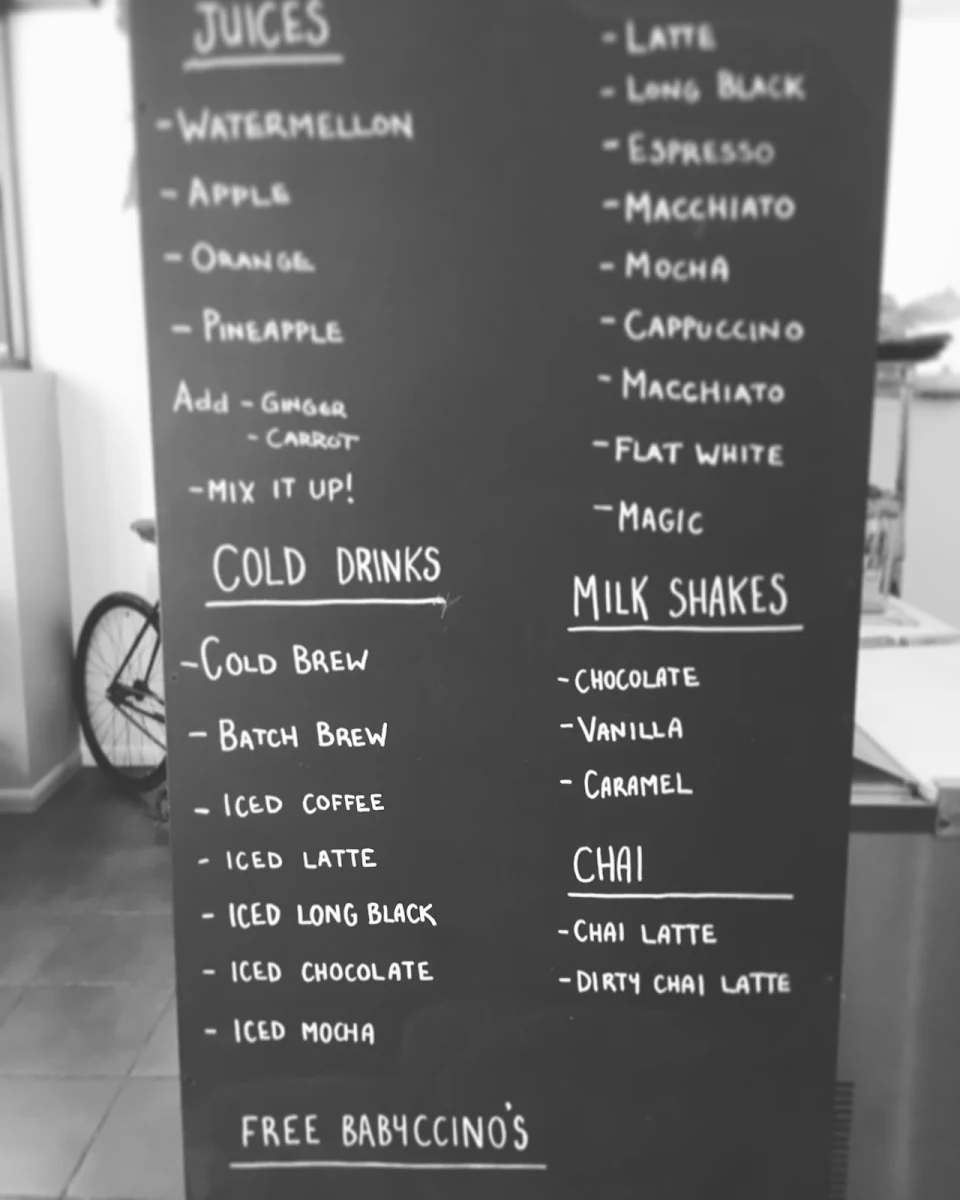 JUICES
- WATERMELLON
- APPLE
- ORANGE
- PINEAPPLE
Add - GINGER
- CARROT
- MIX IT UP!
COLD DRINKS
- COLD BREW
- BATCH BREW
- ICED COFFEE
- ICED LATTE
- ICED LONG BLACK
- ICED CHOCOLATE
- ICED MOCHA
FREE BABYCCINO'S
- LATTE
- LONG BLACK
- ESPRESSO
- MACCHIATO
- MOCHA
- CAPPUCCINO
- MACCHIATO
- FLAT WHITE
- MAGIC
MILK SHAKES
- CHOCOLATE
- VANILLA
- CARAMEL
CHAI
- CHAI LATTE
- DIRTY CHAI LATTE